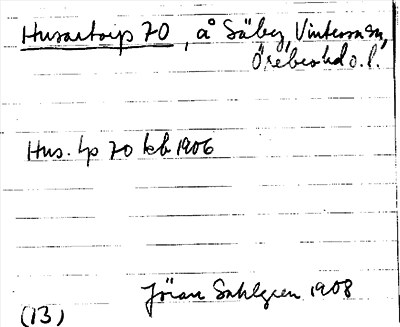 Husartorp 70, å Säby, Vintrosa sn,
Örebro hd o. l.
Hus. tp 70 kb 1906
Jöran Sahlgren 1908
(13)